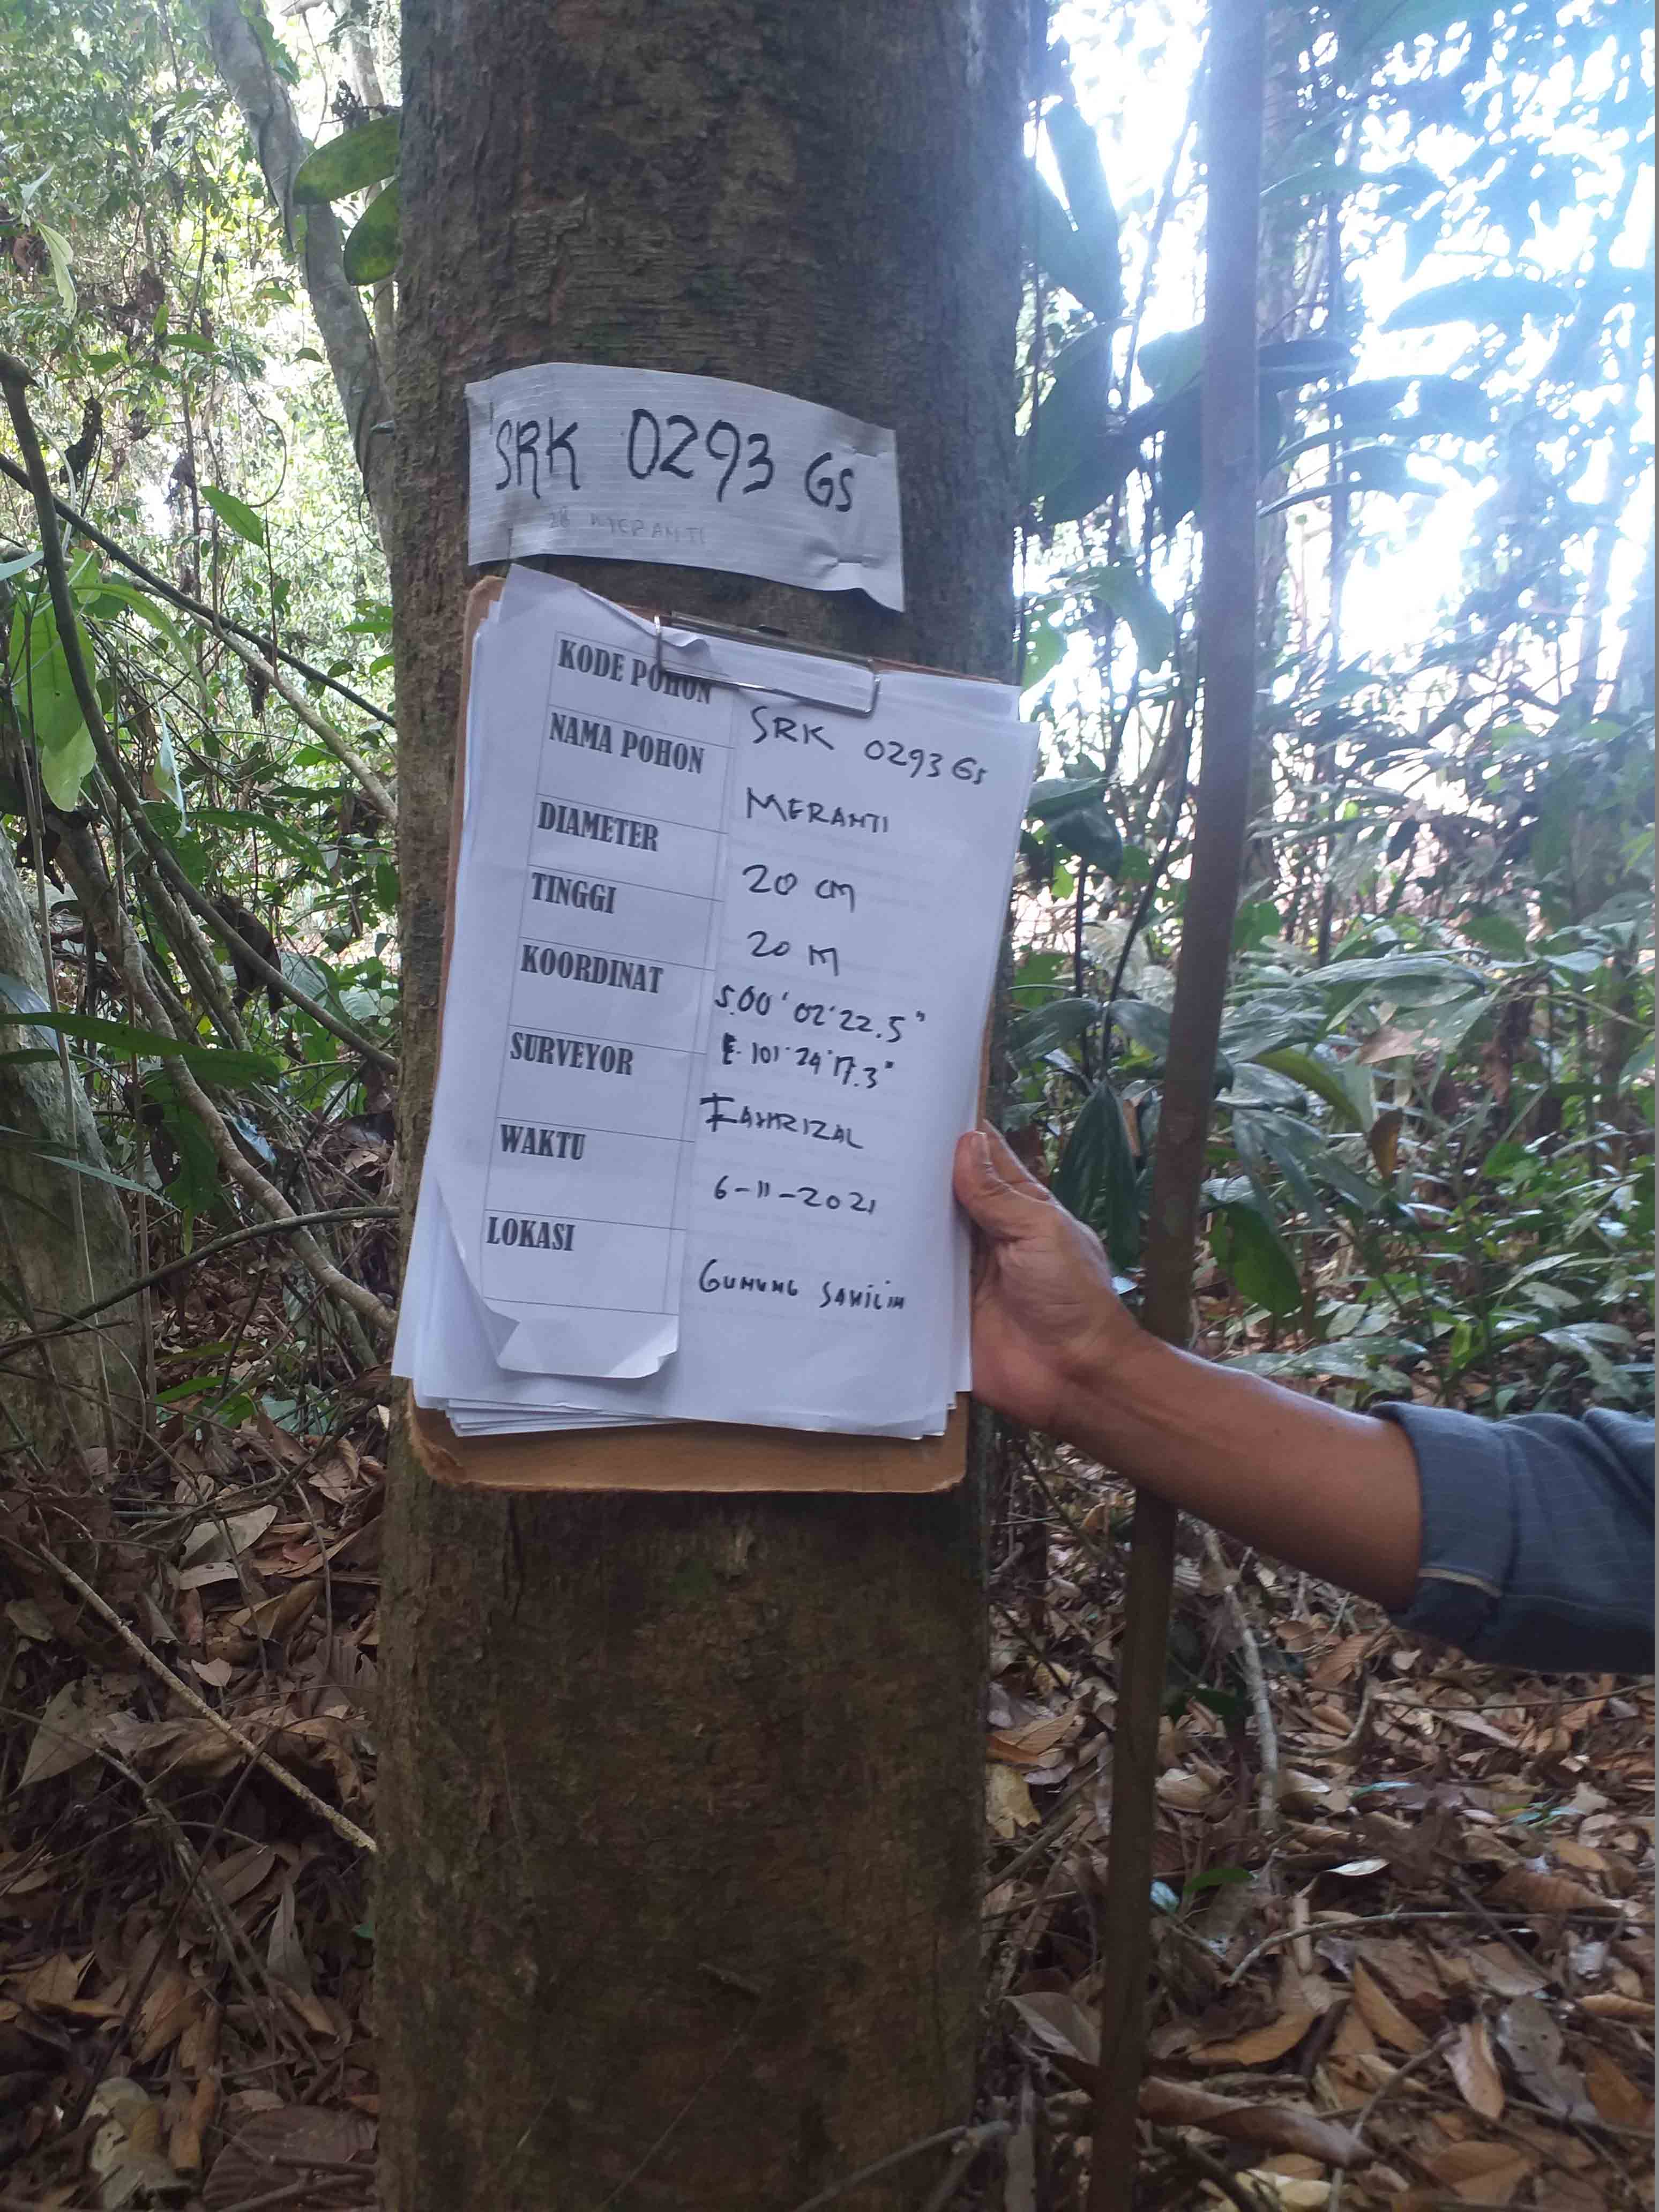 SRK 0293 GS
28 MERANTI
KODE POHON SRK 0293 GS
NAMA POHON MERANTI
DIAMETER 20 CM
TINGGI 20 M
KOORDINAT S.00' 02' 22.5"
E. 101' 24' 17.3"
SURVEYOR FAHRIZAL
WAKTU 6-11-2021
LOKASI GUNUNG SAHILIN